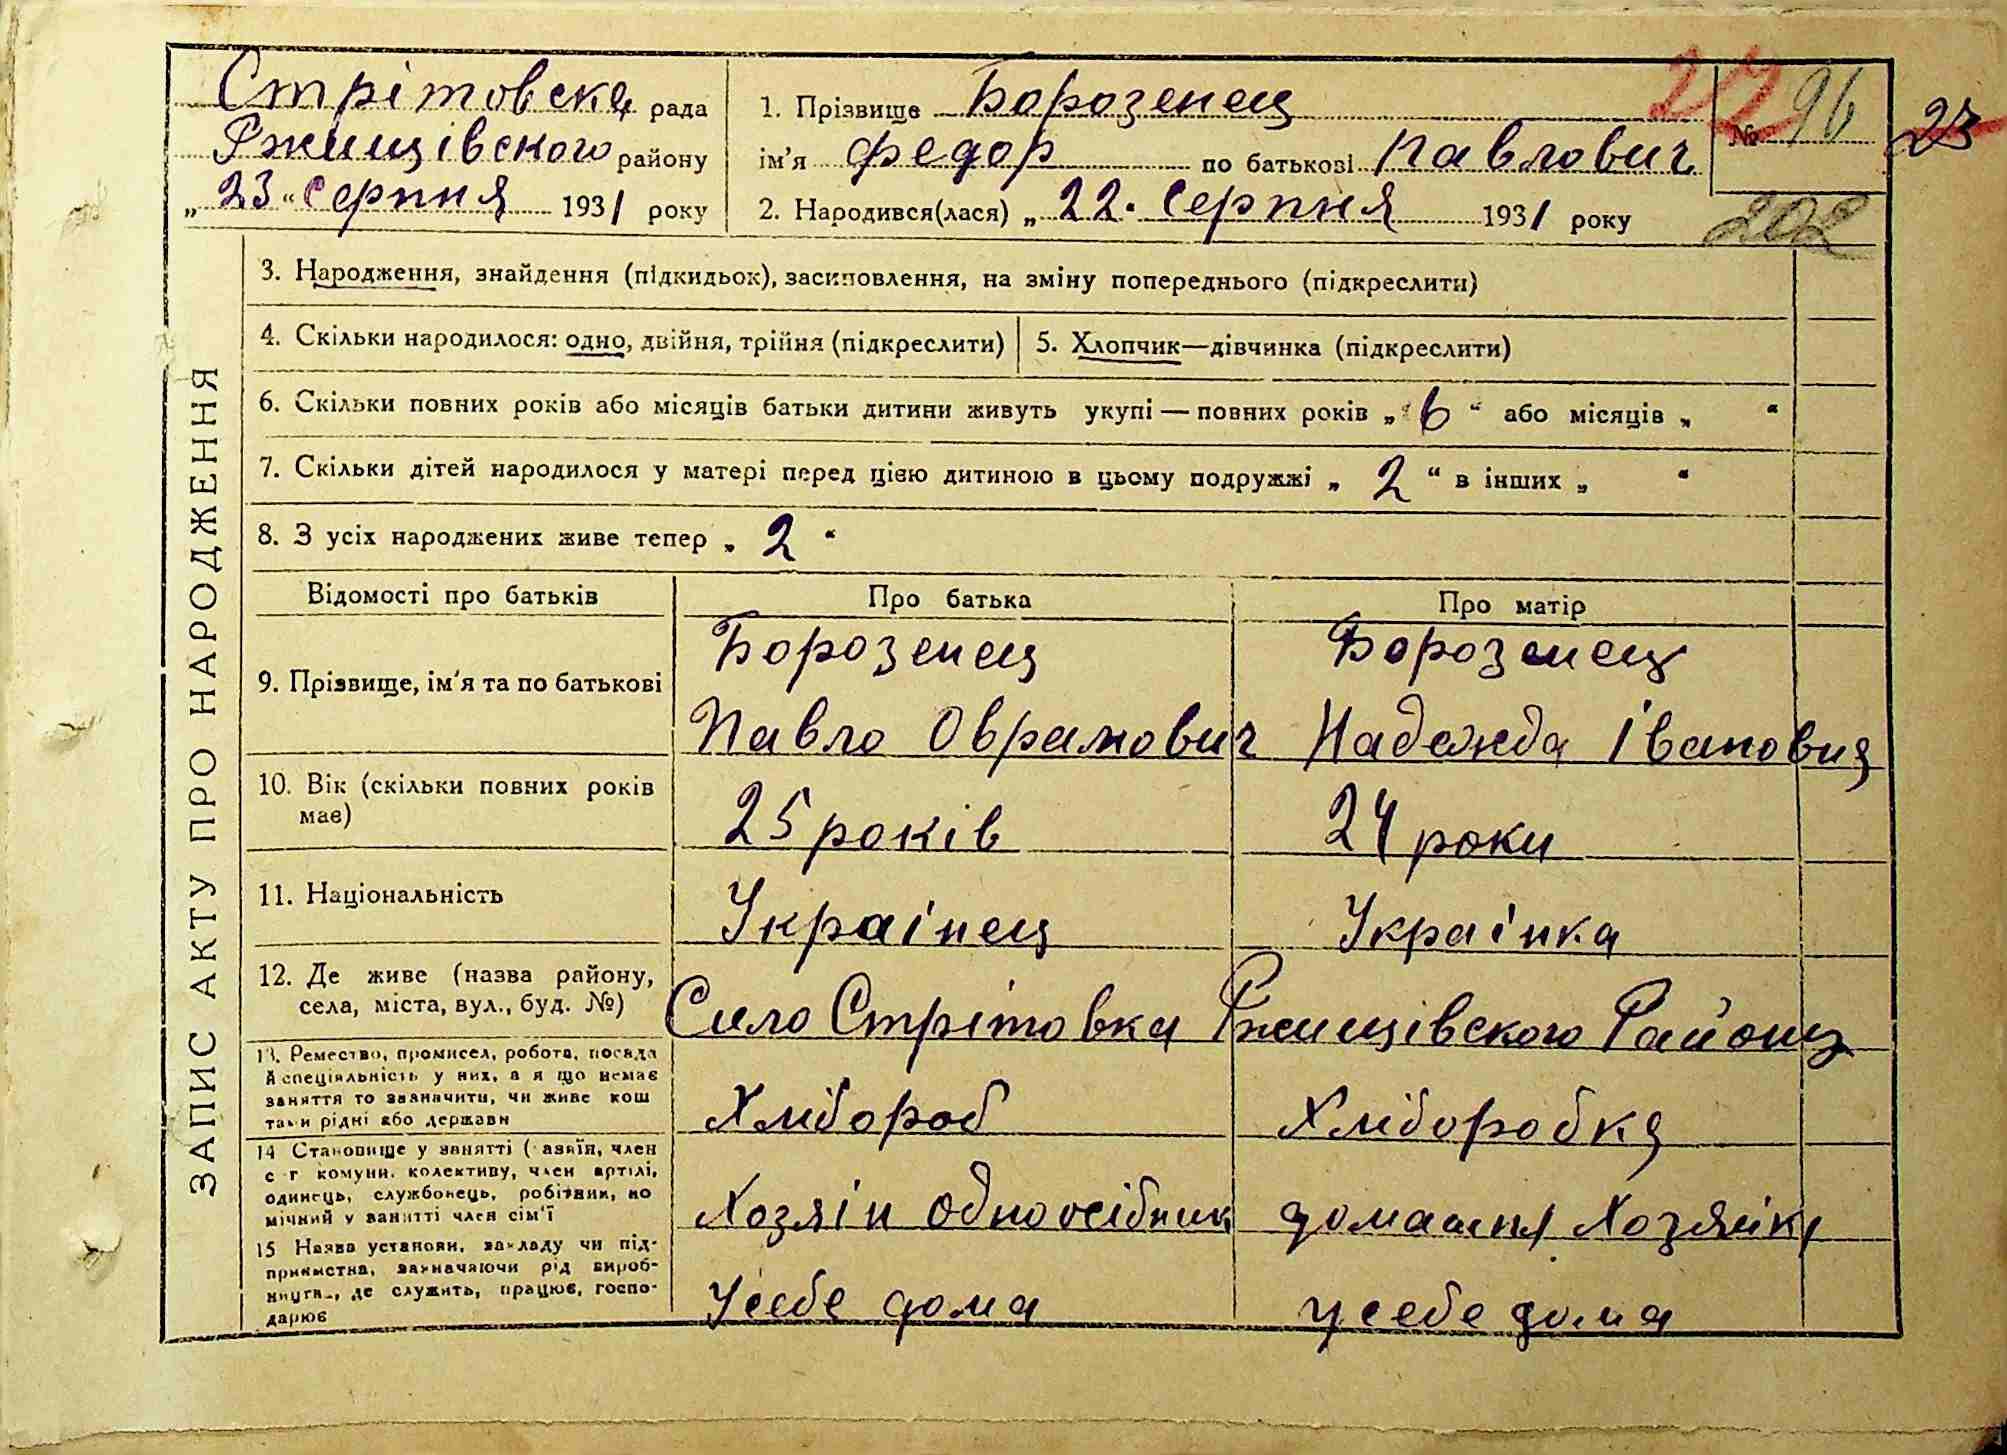 Стрітовска рада
Ржищівского району
„23“ серпня 1931 року
1. Прізвище Борозенец
ім'я Федор по батькові Павлович
2. Народився(лася) „22. серпня 1931 року
27
№ 96
23
202
ЗАПИС АКТУ ПРО НАРОДЖЕННЯ
3. Народження, знайдення (підкидьок), засиновлення, на зміну попереднього (підкреслити)
4. Скільки народилося: одно, двійня, трійня (підкреслити)
5. Хлопчик—дівчинка (підкреслити)
6. Скільки повних років або місяців батьки дитини живуть укупі — повних років „6“ або місяців „ “
7. Скільки дітей народилося у матері перед цією дитиною в цьому подружжі „2“ в інших „ “
8. З усіх народжених живе тепер „2“
Відомості про батьків Про батька Про матір
9. Прізвище, ім'я та по батькові
Борозенец
Павло Оврамович
Борозенец
Надежда Івановна
10. Вік (скільки повних років
має)
25 років
24 роки
11. Національність
Украінец
Украінка
12. Де живе (назва району,
села, міста, вул., буд. №)
Село Стрітовка Ржищівского Району
13. Ремество, промисел, робота, посада
й спеціяльність у них, а я що немає
заняття то зазначити, чи живе кош
таки рідні або держави
Хлібороб
Хлібробка
14 Становище у занятті (хазяїн, член
с-г комуни, колективу, член артілі,
одинець, службонець, робітник, по
мічний у занятті член сім'ї
Хозяін Одноосібник
домашня Хозяйка
15 Назва установи, закладу чи під-
приємства, зазначаючи рід вироб-
ництва, де служить, працює, госпо-
дарює
У себе дома
у себе дома